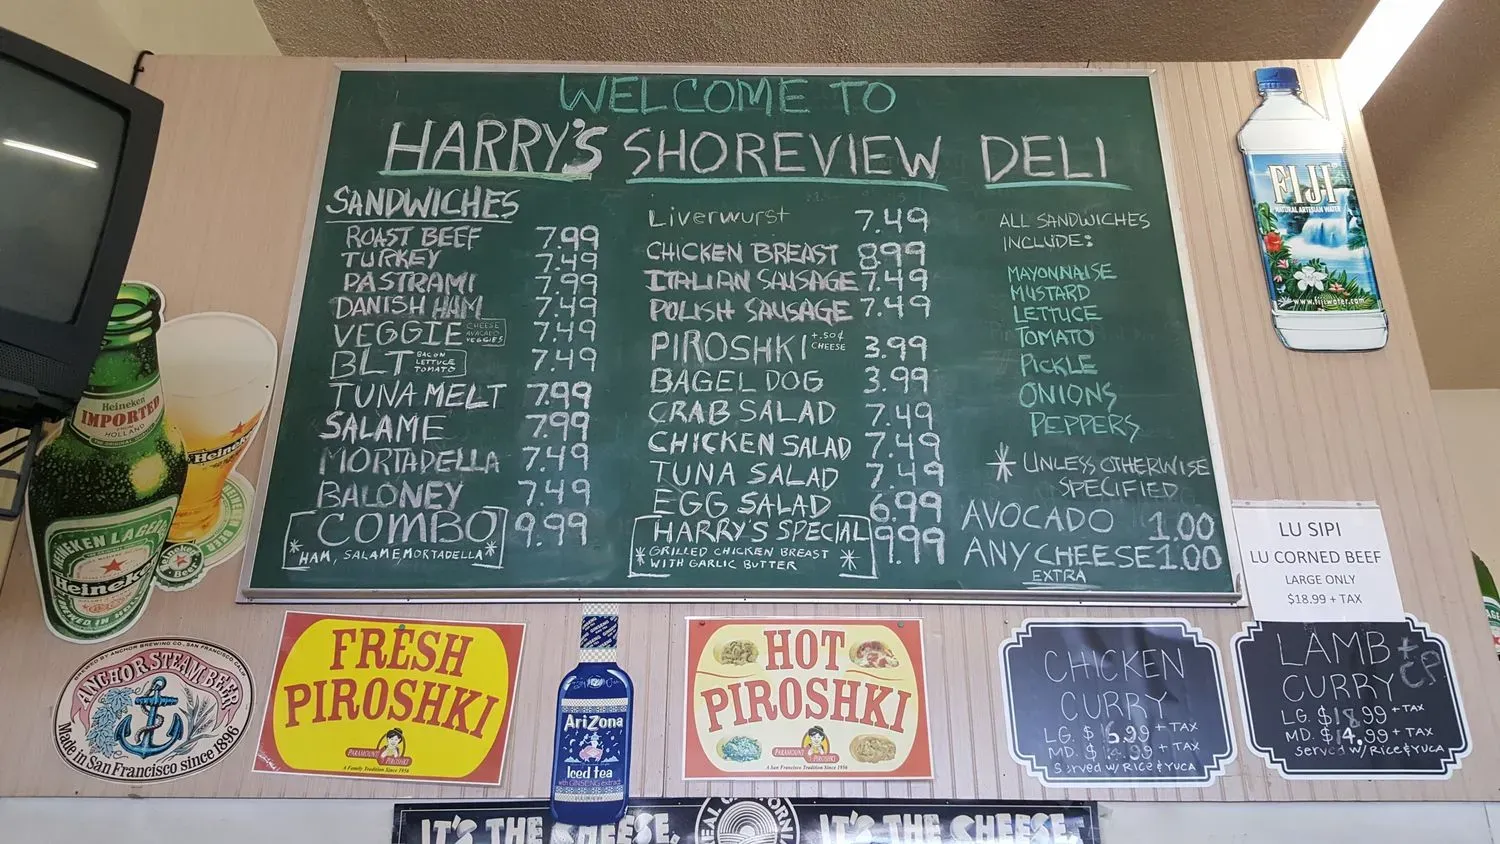 WELCOME TO
HARRY'S SHOREVIEW DELI
SANDWICHES
ROAST BEEF 7.99
TURKEY 7.49
PASTRAMI 7.99
DANISH HAM 7.49
VEGGIE CHEESE AVACADO VEGGIES 7.49
BLT BACON LETTUCE TOMATO 7.49
TUNA MELT 7.99
SALAME 7.99
MORTADELLA 7.49
BALONEY 7.49
COMBO 9.99
* HAM, SALAME, MORTADELLA *
Liverwurst 7.49
CHICKEN BREAST 8.99
ITALIAN SAUSAGE 7.49
POLISH SAUSAGE 7.49
PIROSHKI +.50¢ CHEESE 3.99
BAGEL DOG 3.99
CRAB SALAD 7.49
CHICKEN SALAD 7.49
TUNA SALAD 7.49
EGG SALAD 6.99
HARRY'S SPECIAL 9.99
* GRILLED CHICKEN BREAST *
WITH GARLIC BUTTER
ALL SANDWICHES
INCLUDE:
MAYONNAISE
MUSTARD
LETTUCE
TOMATO
PICKLE
ONIONS
PEPPERS
* UNLESS OTHERWISE
SPECIFIED
AVOCADO 1.00
ANY CHEESE 1.00
EXTRA
FIJI
NATURAL ARTESIAN WATER
www.fijiwater.com
LU SIPI
LU CORNED BEEF
LARGE ONLY
$18.99 + TAX
Heineken
IMPORTED
HOLLAND
HEINEKEN LAGER BEER
Heineken
Heineken
BREWED BY ANCHOR BREWING CO., SAN FRANCISCO, CALIF.
ANCHOR STEAM BEER
Made in San Francisco since 1896
FRESH
PIROSHKI
PARAMOUNT PIROSHKI
A Family Tradition Since 1956
AriZona
Iced tea
with GINSENG extract
HOT
PIROSHKI
PARAMOUNT PIROSHKI
A San Francisco Tradition Since 1956
CHICKEN
CURRY
LG. $ 6.99 + TAX
MD. $ .99 + TAX
served w/ Rice & YUCA
LAMB + CP
CURRY
LG. $18.99 + TAX
MD. $14.99 + TAX
served w/ Rice & YUCA
IT'S THE CHEESE.
REAL CALIFORNIA
IT'S THE CHEESE.